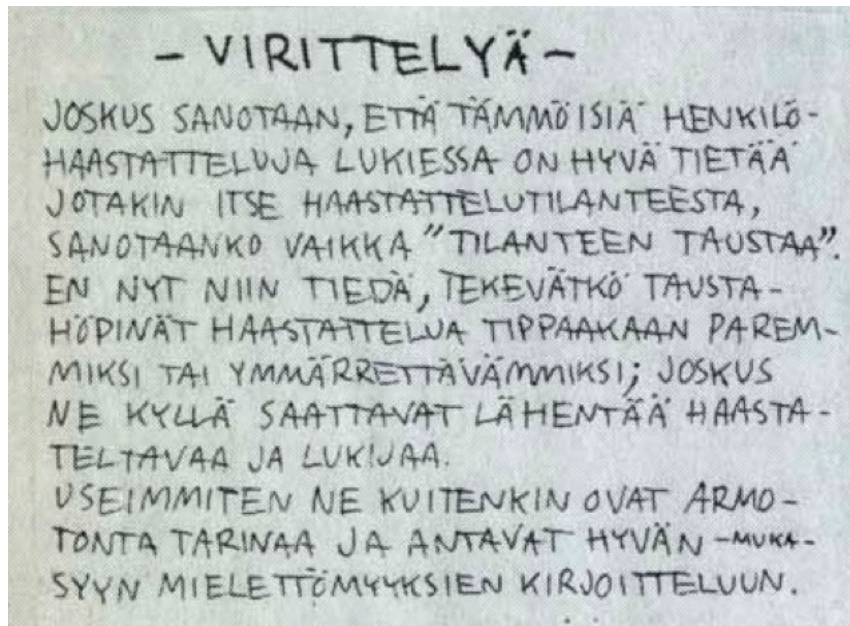 - VIRITTELYÄ -
JOSKUS SANOTAAN, ETTÄ TÄMMÖISIÄ HENKILÖ-
HAASTATTELUJA LUKIESSA ON HYVÄ TIETÄÄ
JOTAKIN ITSE HAASTATTELUTILANTEESTA,
SANOTAANKO VAIKKA "TILANTEEN TAUSTAA".
EN NYT NIIN TIEDÄ, TEKEVÄTKÖ TAUSTA-
HÖPINÄT HAASTATTELUA TIPPAAKAAN PAREM-
MIKSI TAI YMMÄRRETTÄVÄMMIKSI; JOSKUS
NE KYLLÄ SAATTAVAT LÄHENTÄÄ HAASTA-
TELTAVAA JA LUKIJAA.
USEIMMITEN NE KUITENKIN OVAT ARMO-
TONTA TARINAA JA ANTAVAT HYVÄN -MUKA-
SYYN MIELETTÖMYYKSIEN KIRJOITTELUUN.